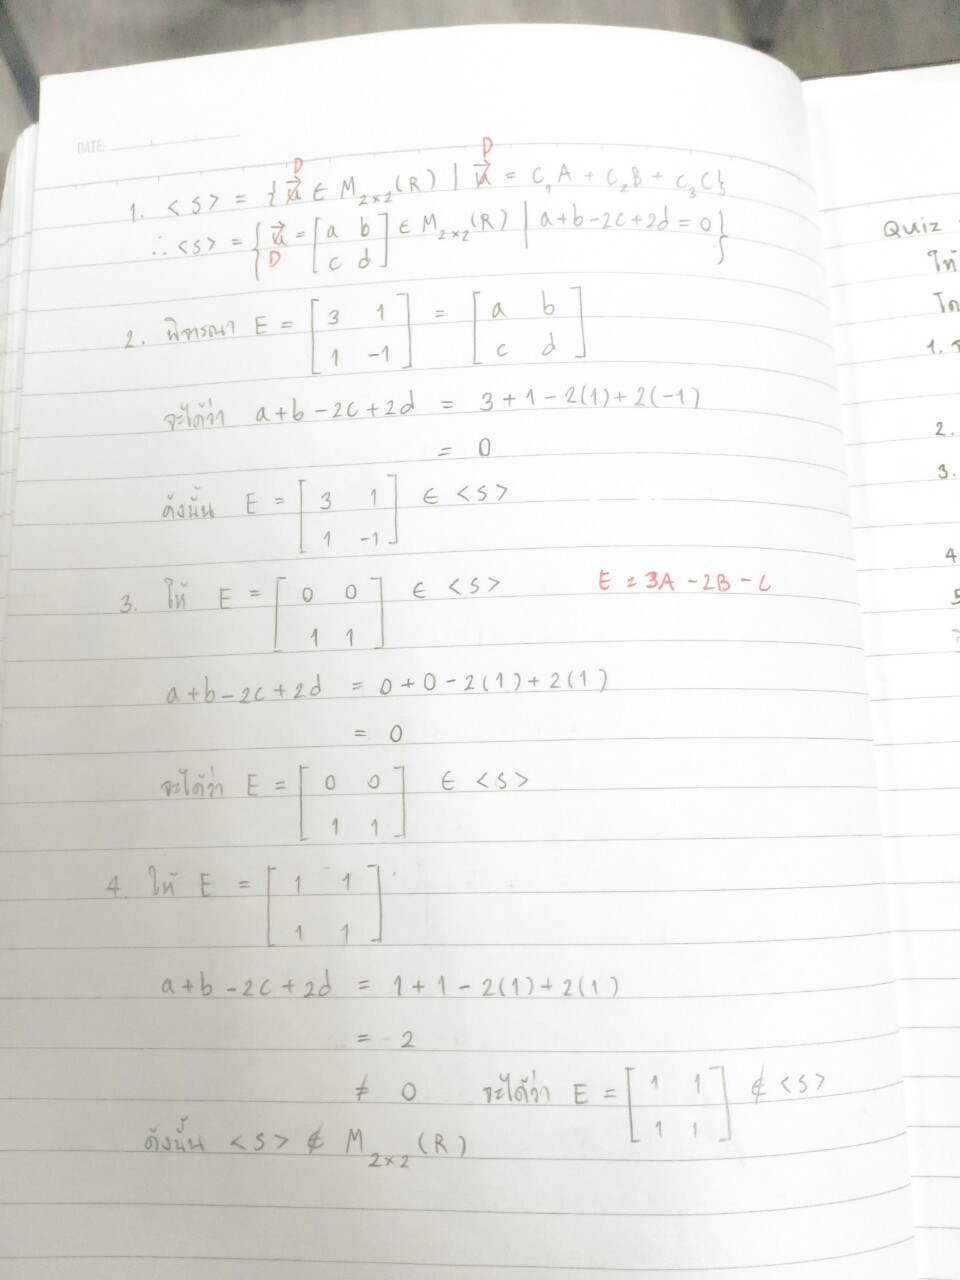 DATE:
D D
1. <S> = { u⃗ ∈ M₂ₓ₂(R) | u⃗ = C₁A + C₂B + C₃C}
∴ <S> = { u⃗ = [a b ∈ M₂ₓ₂(R) | a+b-2c+2d = 0}
D c d]
2. พิจารณา E = [3 1 = [a b
1 -1] c d]
จะได้ว่า a+b-2c+2d = 3+1-2(1)+2(-1)
= 0
ดังนั้น E = [3 1 ∈ <S>
1 -1]
3. ให้ E = [0 0 ∈ <S> E = 3A - 2B - C
1 1]
a+b-2c+2d = 0+0-2(1)+2(1)
= 0
จะได้ว่า E = [0 0 ∈ <S>
1 1]
4. ให้ E = [1 1
1 1]
a+b-2c+2d = 1+1-2(1)+2(1)
= 2
≠ 0 จะได้ว่า E = [1 1 ∉ <S>
1 1]
ดังนั้น <S> ∉ M₂ₓ₂(R)
Quiz
ให้
1.
2.
3.
4
5